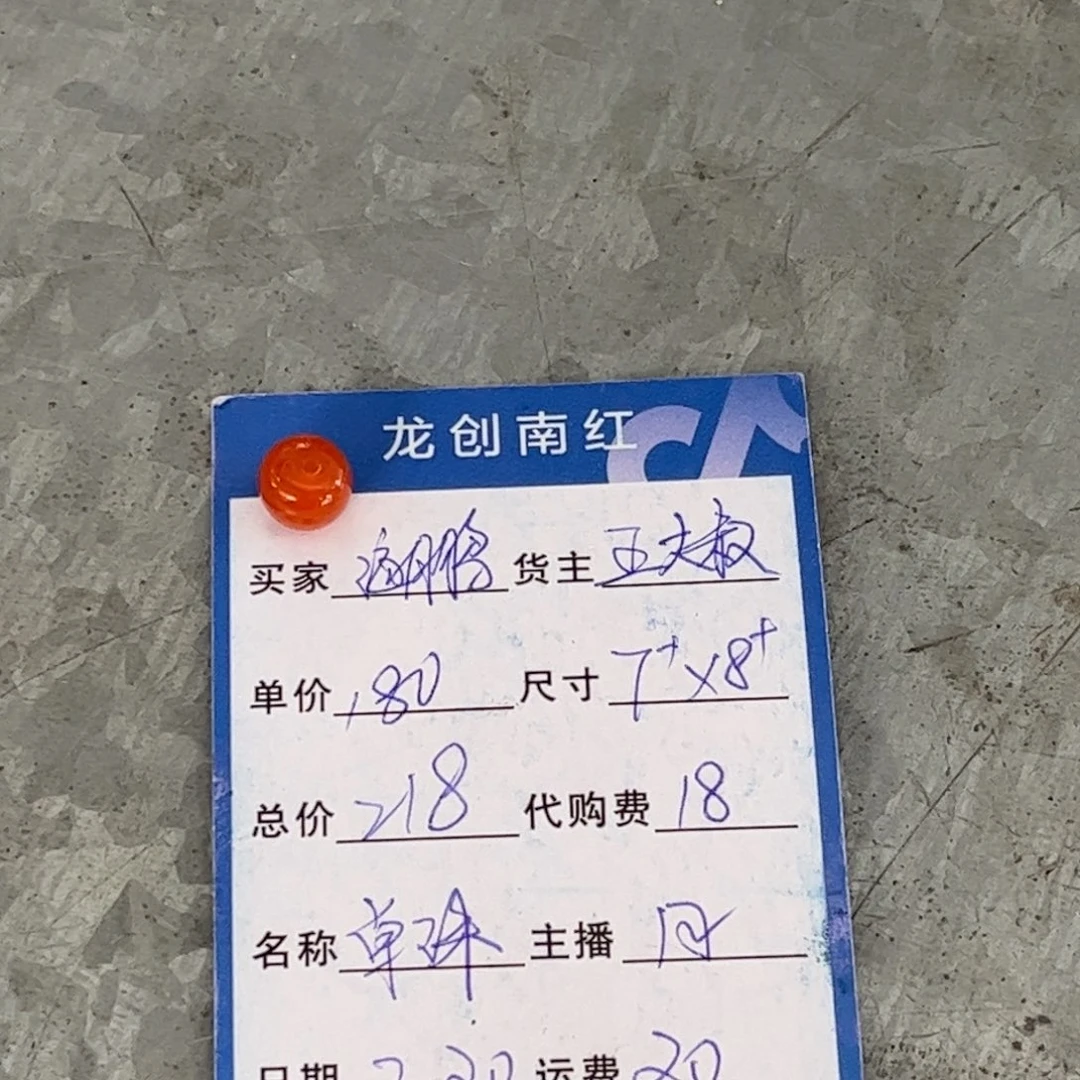 龙创南红
买家 鹏 货主 王大叔
单价 180 尺寸 7+x8+
总价 218 代购费 18
名称 单珠 主播
日期 2.20 运费 20